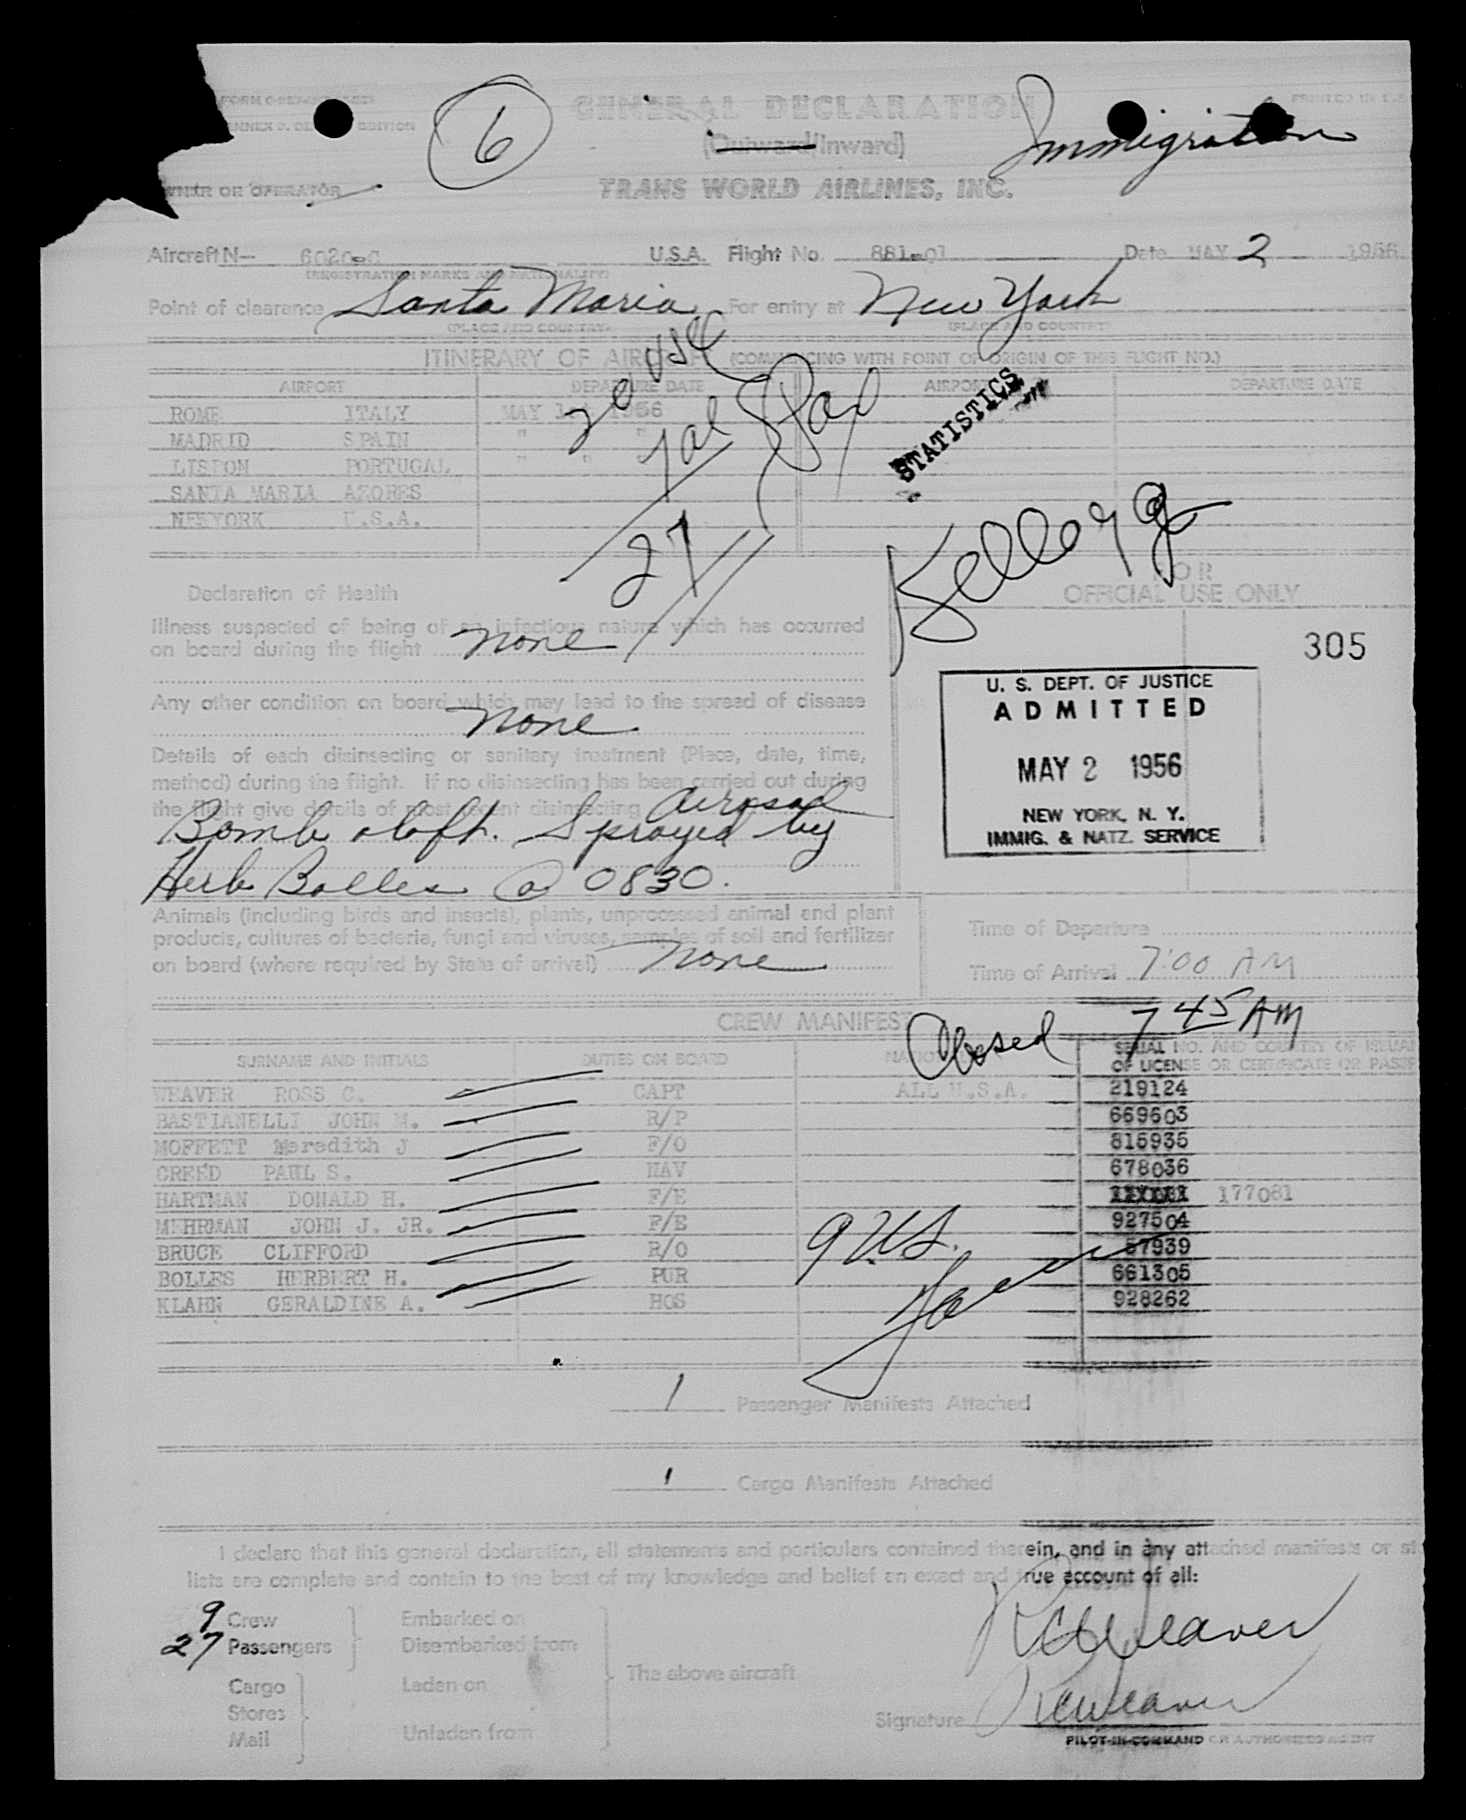 GENERAL DECLARATION
(Outward/Inward)
6
Immigration
OWNER OR OPERATOR
TRANS WORLD AIRLINES, INC.
Aircraft N- 6020-C U.S.A. Flight No. 881-01 Date MAY 2 1956
(REGISTRATION MARKS AND NATIONALITY)
Point of clearance Santa Maria For entry at New York
(PLACE AND COUNTRY) (PLACE AND COUNTRY)
ITINERARY OF AIRCRAFT (COMMENCING WITH POINT OF ORIGIN OF THIS FLIGHT NO.)
AIRPORT DEPARTURE DATE AIRPORT DEPARTURE DATE
ROME ITALY MAY 1st 1956
MADRID SPAIN " "
LISBON PORTUGAL " "
SANTA MARIA AZORES
NEWYORK U.S.A.
20 USC
7 al
27 Pax
STATISTICS
Kellogg
Declaration of Health
FOR
OFFICIAL USE ONLY
Illness suspected of being of an infectious nature which has occurred
on board during the flight none
305
Any other condition on board which may lead to the spread of disease
none
U. S. DEPT. OF JUSTICE
ADMITTED
MAY 2 1956
NEW YORK, N. Y.
IMMIG. & NATZ. SERVICE
Details of each disinsecting or sanitary treatment (Place, date, time,
method) during the flight. If no disinsecting has been carried out during
the flight give details of most recent disinsecting Aerosol
Bomb aloft. Sprayed by
Herb Bolles @ 0830.
Animals (including birds and insects), plants, unprocessed animal and plant
products, cultures of bacteria, fungi and viruses, samples of soil and fertilizer
on board (where required by State of arrival) none
Time of Departure
Time of Arrival 7:00 AM
CREW MANIFEST
Closed 7 45 AM
SURNAME AND INITIALS DUTIES ON BOARD SERIAL NO. AND COUNTRY OF ISSUANCE
OF LICENSE OR CERTIFICATE OR PASSP
WEAVER ROSS C. CAPT ALL U.S.A. 219124
BASTIANELLI JOHN M. R/P 669603
MOFFETT Meredith J F/O 815935
CREED PAUL S. NAV 678036
HARTMAN DONALD H. F/E 177081
MEHRMAN JOHN J. JR. F/E 927504
BRUCE CLIFFORD R/O 57939
BOLLES HERBERT H. PUR 661305
KLAHN GERALDINE A. HOS 928262
9 US.
1 Passenger Manifests Attached
1 Cargo Manifests Attached
I declare that this general declaration, all statements and particulars contained therein, and in any attached manifests or st
lists are complete and contain to the best of my knowledge and belief an exact and true account of all:
9 Crew Embarked on
27 Passengers Disembarked from
The above aircraft
Cargo Laden on
Stores
Mail Unladen from
RCWeaver
Signature RCWeaver
PILOT-IN-COMMAND OR AUTHORIZED AGENT